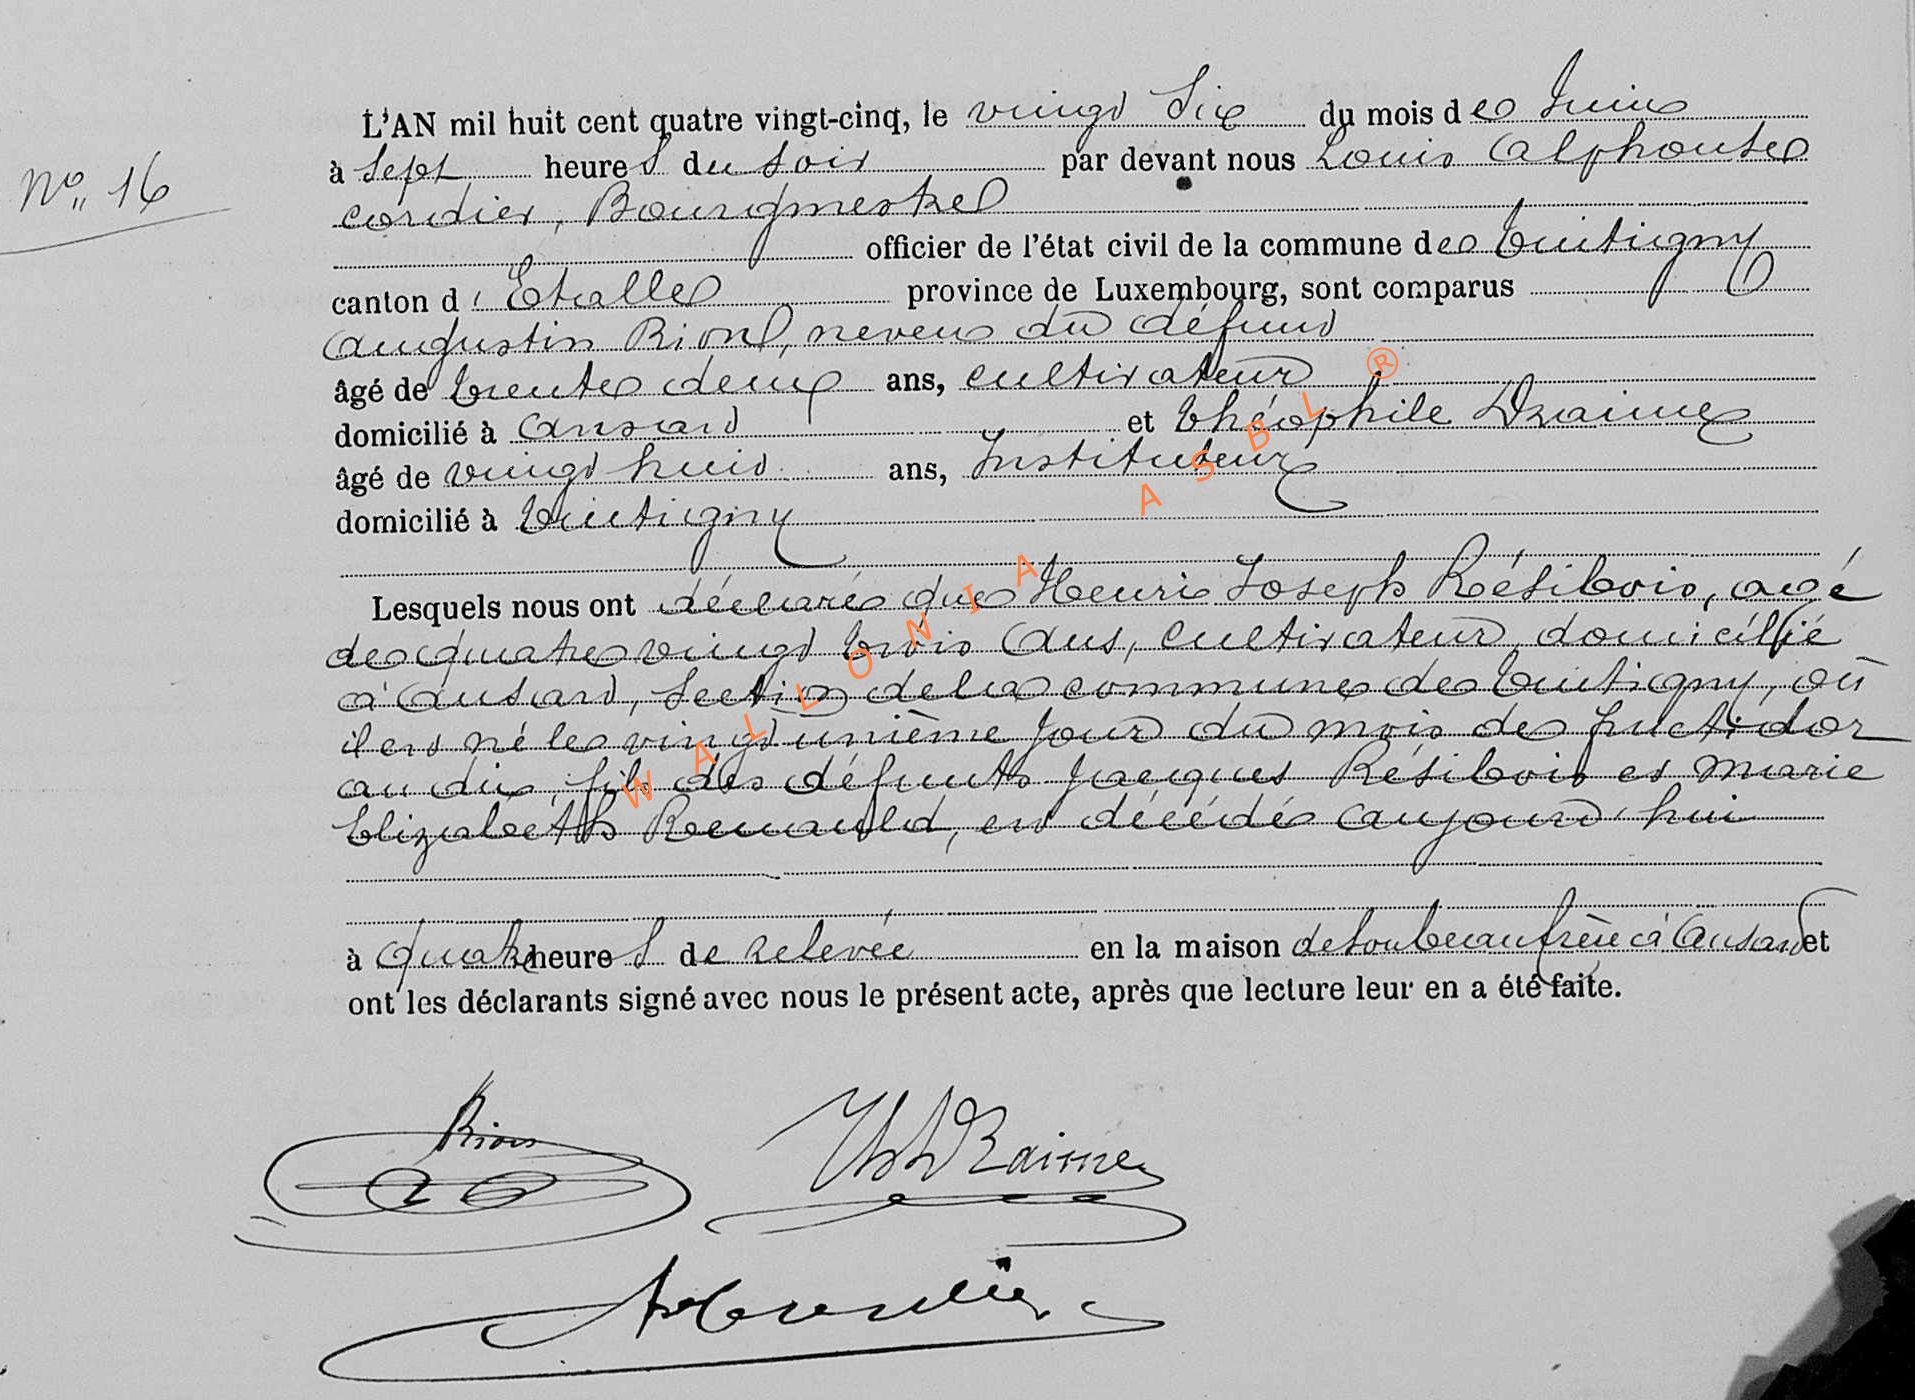 N° 16
L'AN mil huit cent quatre vingt-cinq, le vingt six du mois de Juin
à sept heures du soir par devant nous Louis Alphonse
Cordier, Bourgmestre
officier de l'état civil de la commune de Tintigny
canton d'Etalle province de Luxembourg, sont comparus
Augustin Rion, neveu du défunt
âgé de trente deux ans, cultivateur
domicilié à Ansart et Théophile Draime
âgé de vingt huit ans, Instituteur
domicilié à Tintigny
Lesquels nous ont déclaré que Henri Joseph Résibois, agé
de quatre vingt trois ans, cultivateur, domicillié
à Ansart, section de la commune de Tintigny, où
il est né le vingt unième jour du mois de fructidor
an dix, fils des défunts Jacques Résibois et Marie
Elizabeth Remauld, est décédé aujourd'hui
à quatre heures de relevée en la maison de son beau frère à Ansart et
ont les déclarants signé avec nous le présent acte, après que lecture leur en a été faite.
Rion Th Draime
A Cordier
WALLONIA ASBL ®